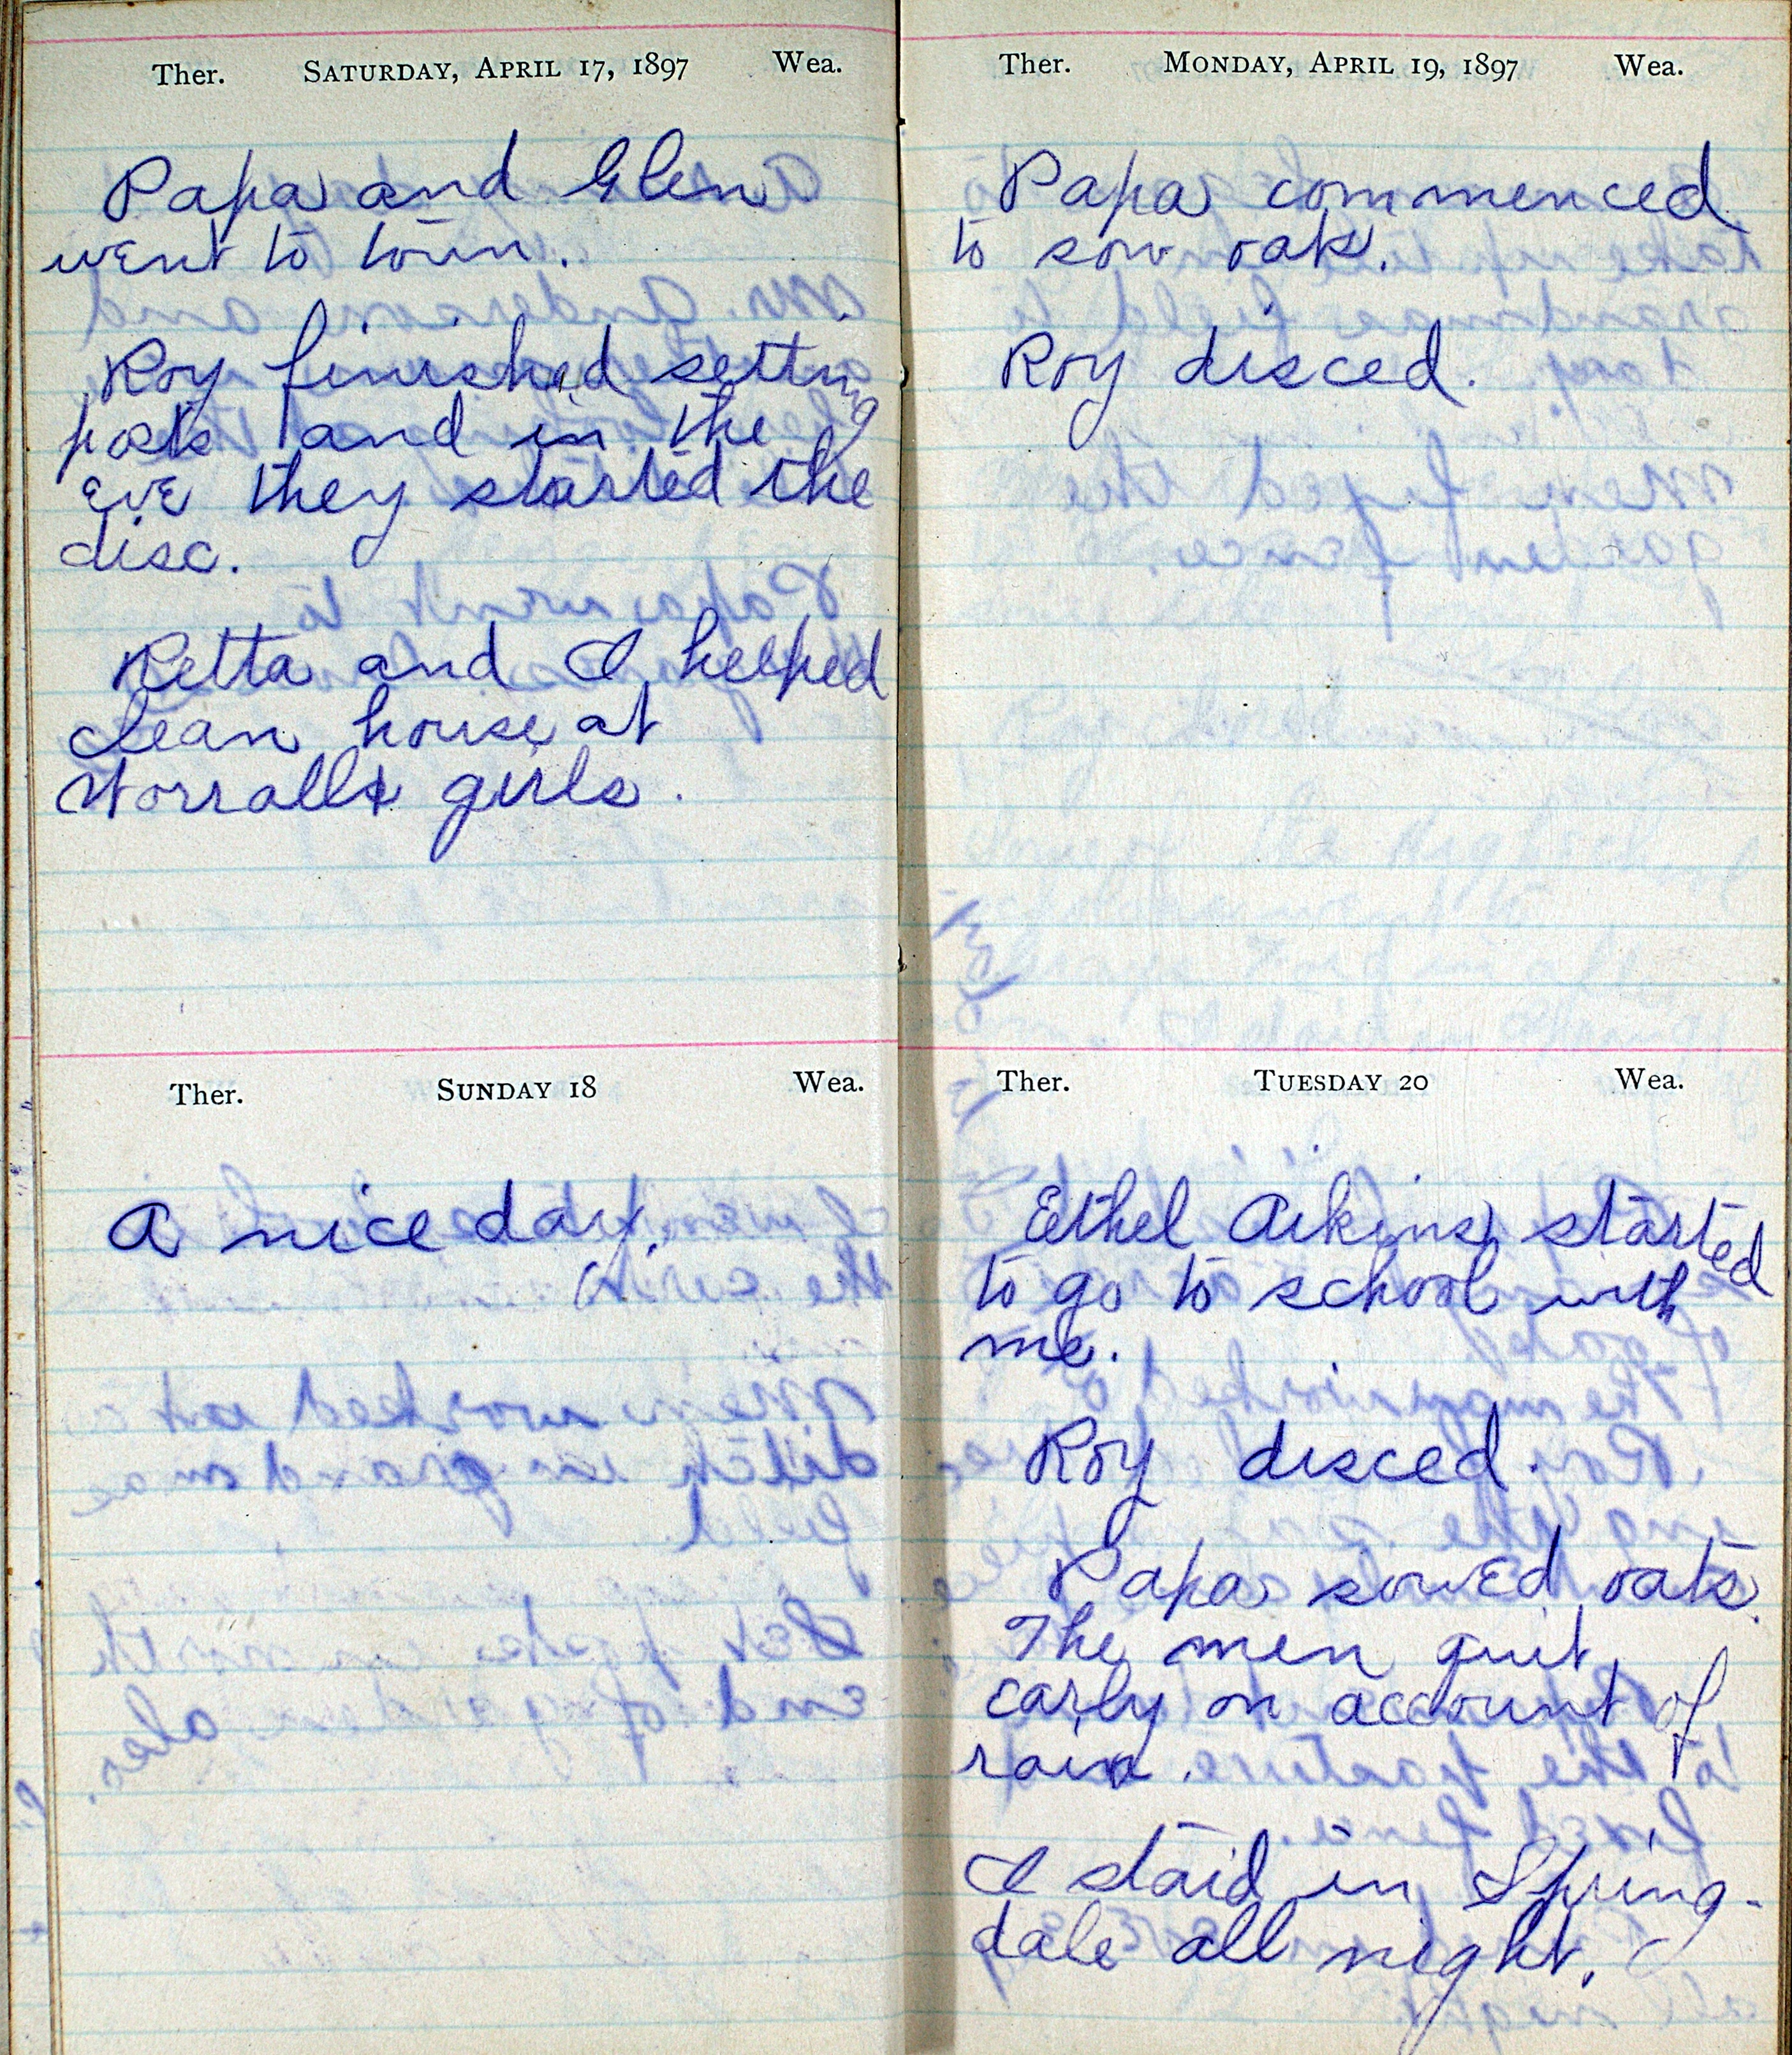 Ther. SATURDAY, APRIL 17, 1897 Wea.
Papa and Glen
went to town.
Roy finished setting
posts and in the
eve they started the
disc.
Retta and I helped
clean house at
Worralls girls.
Ther. SUNDAY 18 Wea.
A nice day.
Ther. MONDAY, APRIL 19, 1897 Wea.
Papa commenced
to sow oats.
Roy disced.
Ther. TUESDAY 20 Wea.
Ethel Aikins started
to go to school with
me.
Roy disced.
Papa sowed oats.
The men quit
early on account of
rain.
I staid in Spring-
dale all night.